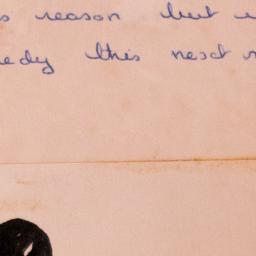 s reason but
edy this next